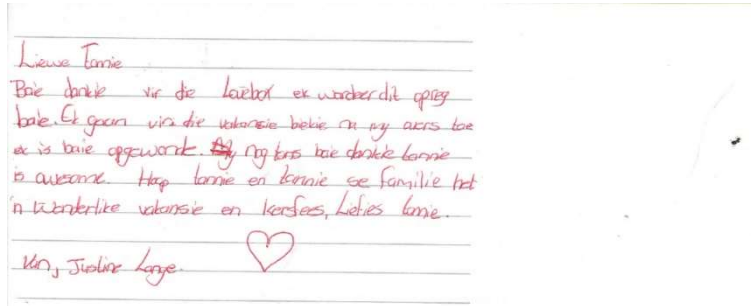 Liewe Tannie
Baie dankie vir die Lovebox ek wardeer dit opreg
baie. Ek gaan vir die vakansie bekie na my ouers toe
ek is baie opgewonde. Nog eens baie dankie tannie
is awesome. Hoop tannie en tannie se familie het
'n Wonderlike vakansie en kersfees, Liefies tannie.
Van, Justine Lange.